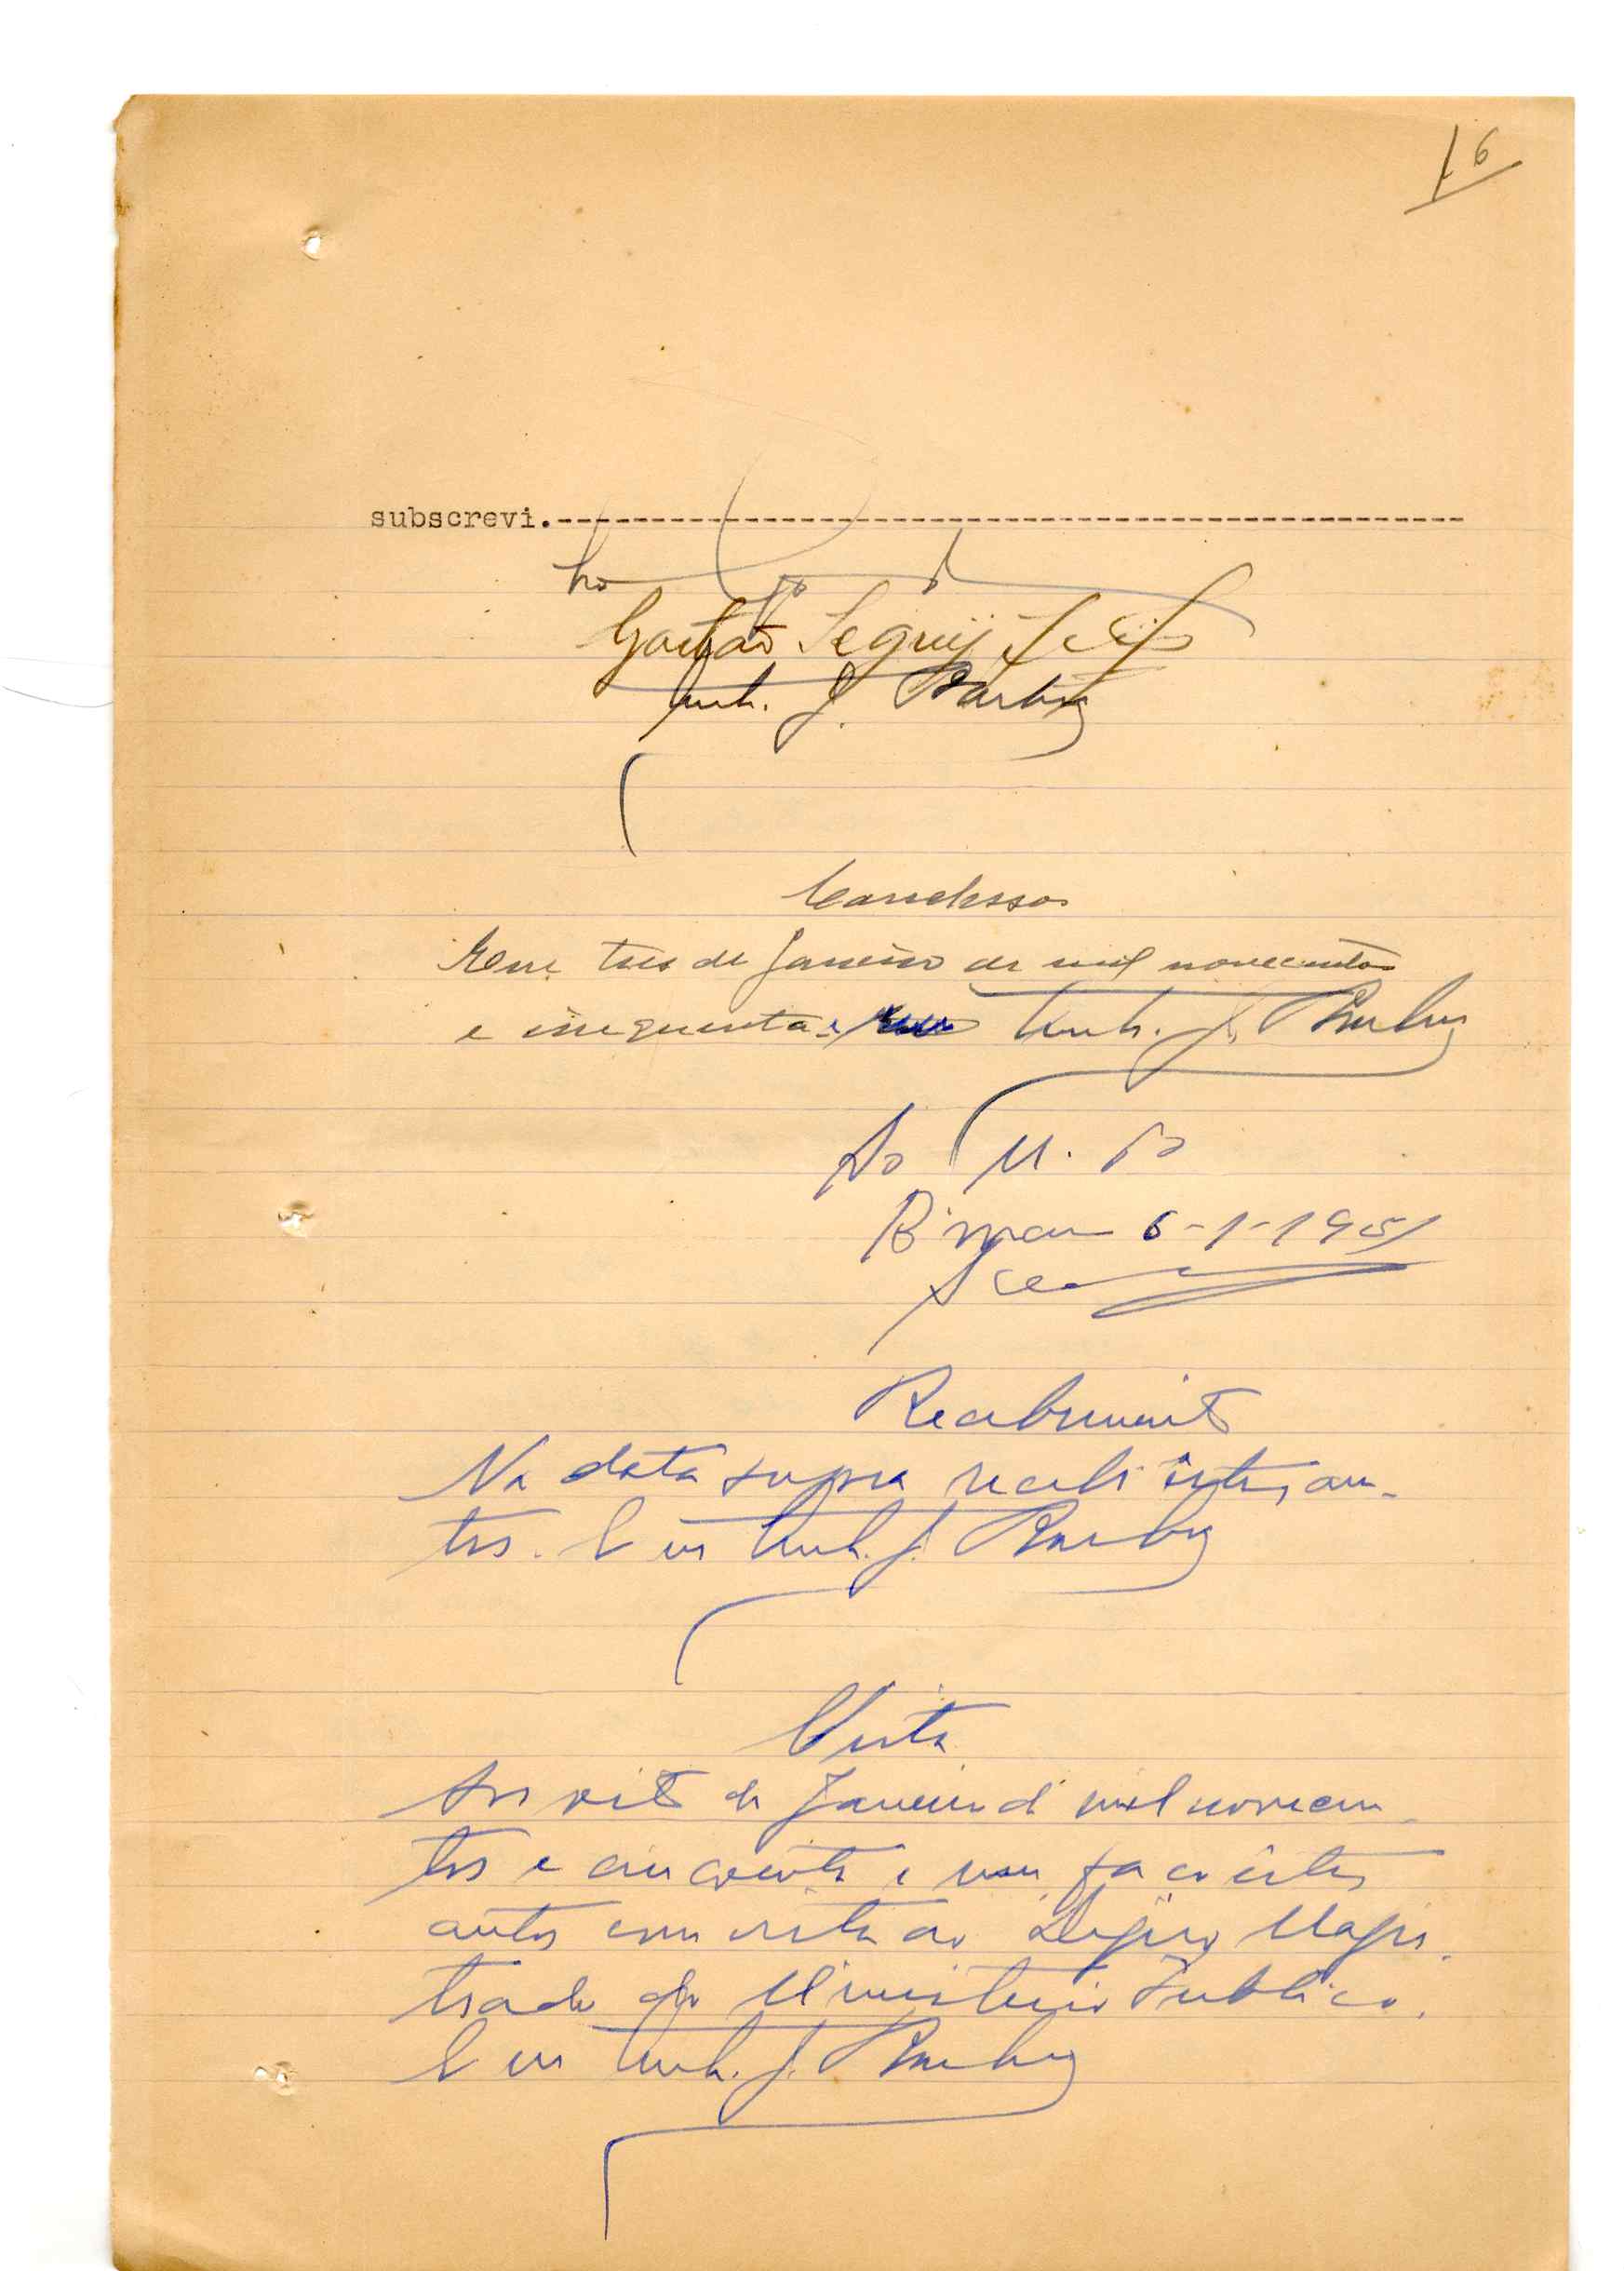 16
subscrevi.
Gastão Seguy
Anh. J. Barboza
Conclusos
Em tres de Janeiro de mil novecentos
e cinquenta e um Anh. J. Barbosa
Ao M. P
Bissau 6-1-1951
Recebimento
Na data supra recebi êstes au-
tos. E eu Anh. J. Barbosa
Vista
Aos oito de Janeiro de mil novecen-
tos e cincoenta e um, faço êstes
autos com vista ao Digno Magis-
trado do Ministerio Publico.
E eu Anh. J. Barbosa